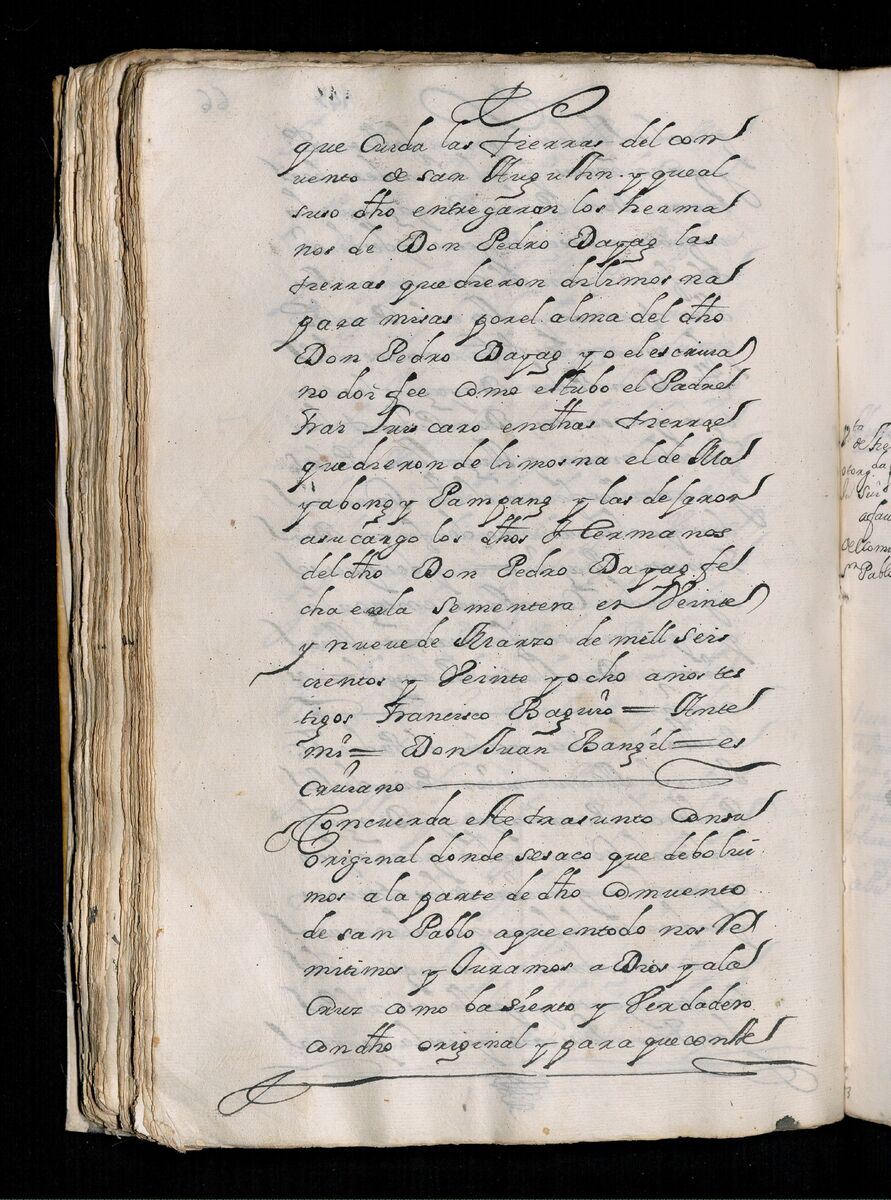 que Cuida las tierras del con
uento de san Augustin. y queal
suso dho entregaron los herma
nos de Don Pedro Dayag las
tierras que dieron delimos na
para misas porel alma del dho
Don Pedro Dayag yo el escriua
no doi fee como estubo el Padre
Frai Luis caro endhas tierras
quedieron de limosna el de Ma
yabong y Pampang y las dejaron
asucargo los dhos Hermanos
del dho Don Pedro Dayag fe
cha enla sementera en Veinte
y nueve de Marzo de mill seis
cientos y Veinte yocho años tes
tigos Francisco = Ante
mi = Don Juan Bangil = es
criuano
Concuerda este trasunto Consu
Original donde sesaco que debolui
mos a la parte de dho Comuento
de san Pablo aqueentodo nos Re
mitimos y Juramos a Dios y ala
Cruz como ba sierto y Verdadero
condho original y para queconste
de tie
otorg.da p
Pablo